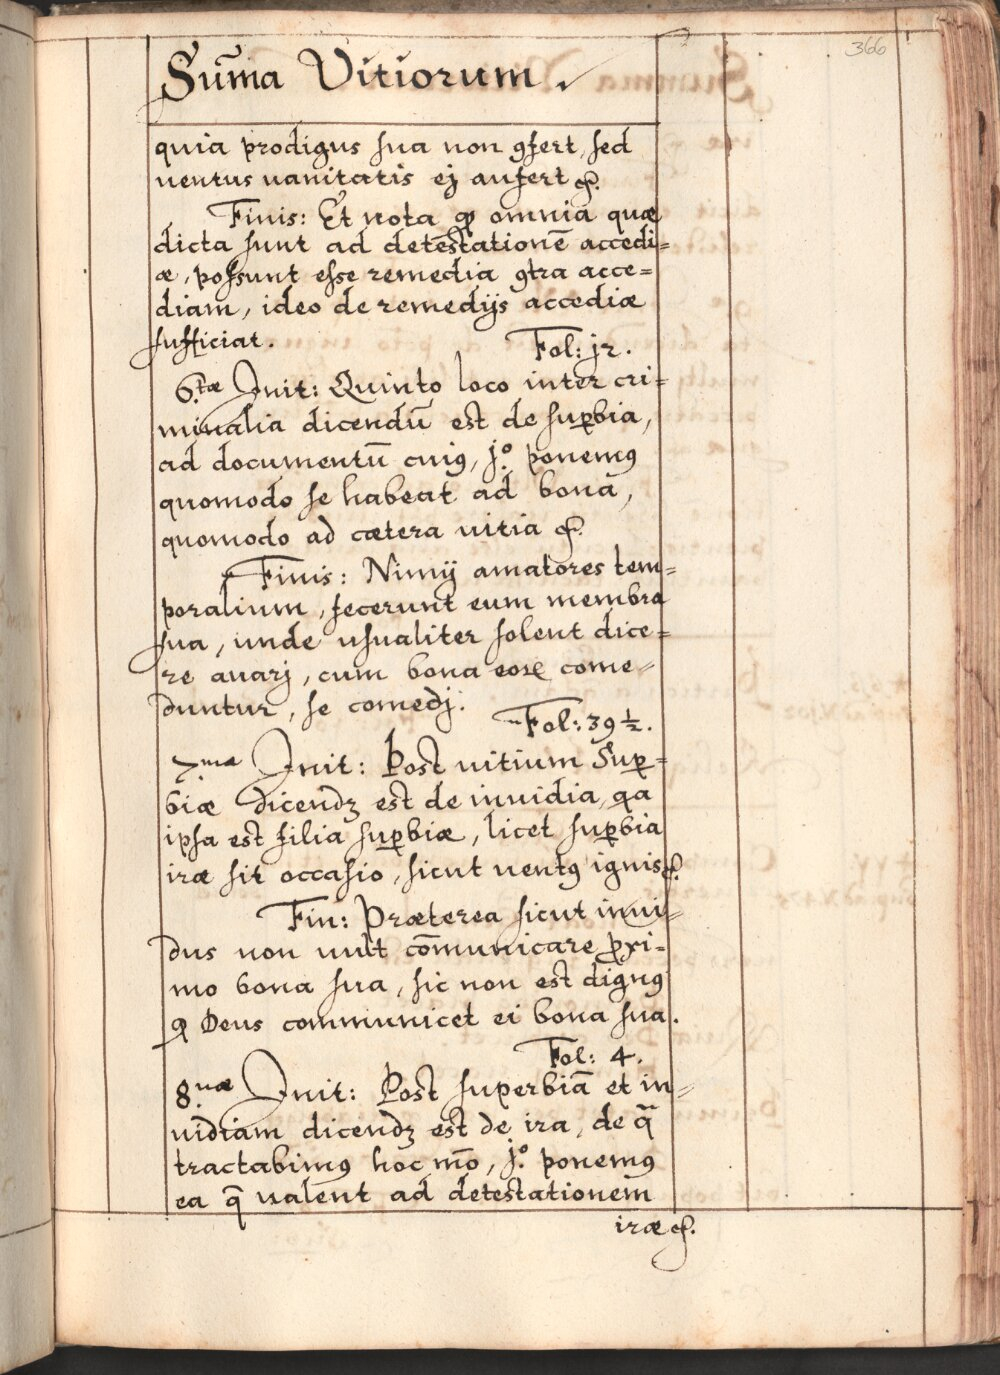 366
Sum̃a Vitiorum.
quia prodigus sua non ꝯfert, sed
uentus uanitatis ej aufert &.
Finis: Et nota ꝙ omnia quæ
dicta sunt ad detestationē accedi=
æ, possunt esse remedia ꝯtra acce=
diam, ideo de remedijs accediæ
sufficiat.
Fol: j2.
6.tæ Init: Quinto loco inter cri=
minalia dicendū est de suꝑbia,
ad documentū cuiꝰ, j.º ponemꝰ
quomodo se habeat ad bona,
quomodo ad cætera uitia &.
Finis: Nimij amatores tem=
poralium, fecerunt eum membra
sua, unde usualiter solent dice=
re auarj, cum bona eoꝝ come=
duntur, se comedj.
Fol: 39 ½.
7.ma Init: Post uitium Suꝑ=
biæ dicendꝫ est de inuidia, qa
ipsa est filia suꝑbiæ, licet suꝑbia
iræ sit occasio, sicut uentꝰ ignis &.
Fin: Præterea sicut inui=
dus non uult com̄unicare ꝓxi=
mo bona sua, sic non est dignꝰ
ꝙ Deus communicet ei bona sua.
Fol: 4.
8.uæ Init: Post superbiā et in=
uidiam dicendꝫ est de ira, de q̃
tractabimꝰ hoc mō, j.º ponemꝰ
ea q̃ ualent ad detestationem
iræ &.